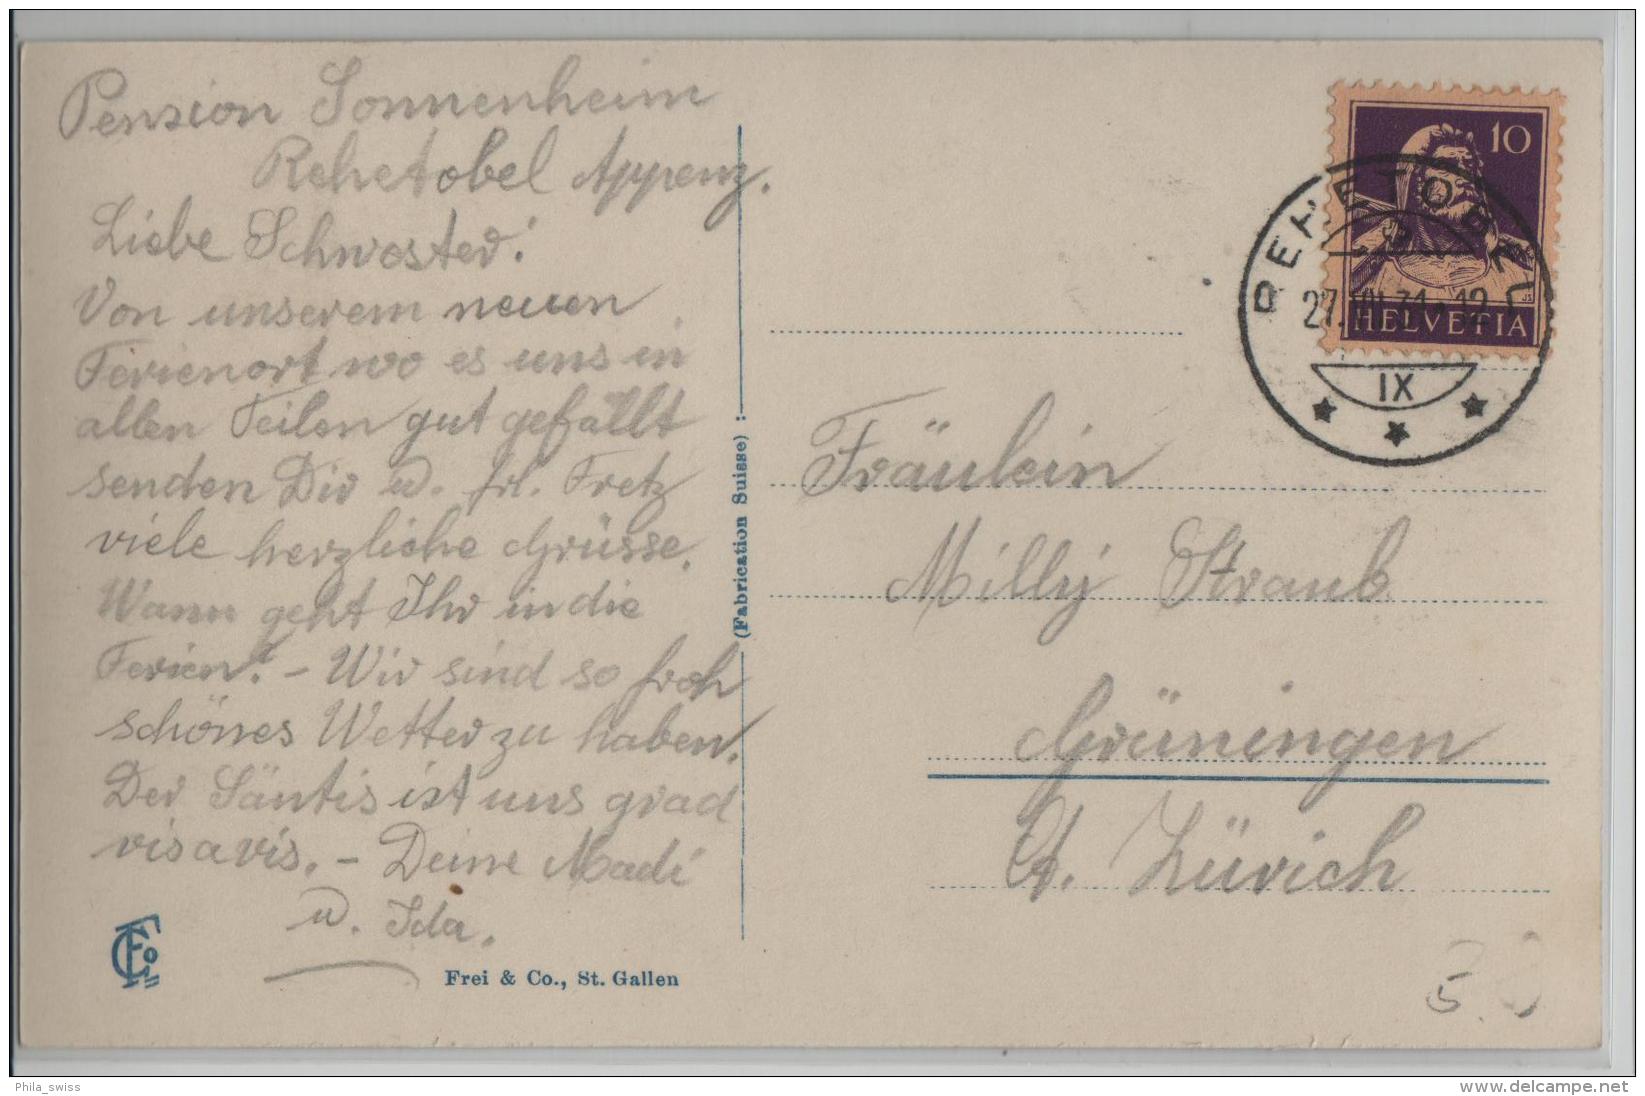 Pension Sonnenheim
Rehetobel Appenz.
Liebe Schwester!
Von unserem neuen
Ferienort wo es uns in
allen Teilen gut gefällt
senden Dir u. frl. Fretz
viele herzliche Grüsse.
Wann geht Ihr in die
Ferien? - Wir sind so froh
schönes Wetter zu haben.
Der Säntis ist uns grad
vis a vis. - Deine Madi
u. Ida.
Frei & Co., St. Gallen
(Fabrication Suisse)
10
HELVETIA
REHETOBEL
27.VII.31-12
IX
Fräulein
Milly Straub
Grüningen
Kt. Zürich
Phila_swiss
www.delcampe.net